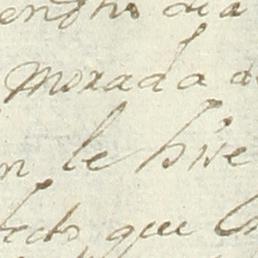 dia
morada d
n le hise
fecto que